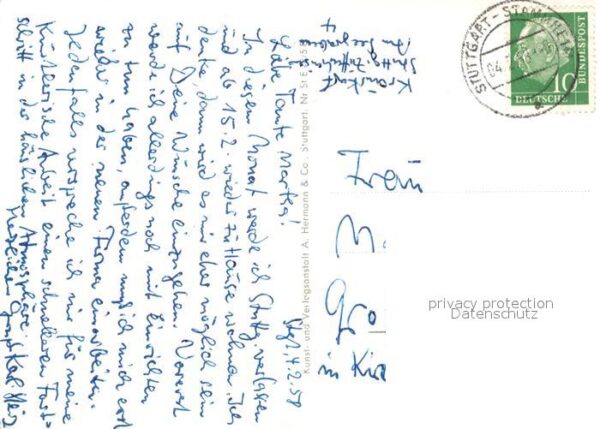 Stgt, 4.2.58
Liebe Tante Martha!
In diesem Monat werde ich Stuttg. verlassen
und ab 15.2. wieder zu Hause wohnen. Ich
denke, dann wird es mir eher möglich sein
auf Deine Wünsche einzugehen. Vorerst
werd ich allerdings noch mit Einrichten
zu tun haben, außerdem muß ich mich erst
wieder in der neuen Firma einarbeiten.
Jedenfalls verspreche ich mir für meine
künstlerische Arbeit einen schnelleren Fort-
schritt in der häuslichen Atmosphäre.
Herzlichen Gruß Karl-Heinz
Kunst- und Verlagsanstalt A. Hermann & Co., Stuttgart Nr St E
Stuttg.
STUTTGART - STAMMHEIM
04.
10
DEUTSCHE BUNDESPOST
Frau
M.
in
privacy protection
Datenschutz